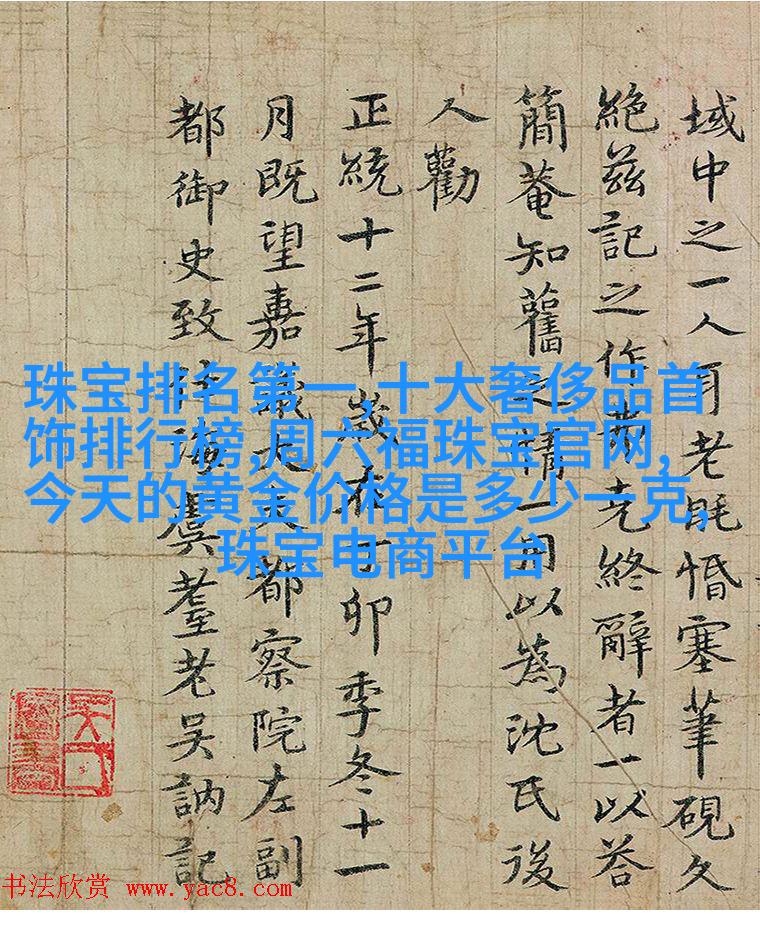 域中之一人耳老眊惛塞筆硯久
絕茲記之作弗克終辭者一以荅
簡菴知舊之情一用以為沈氏後
人勸
正統十二年歲在丁卯季冬十一
月既望嘉議大夫都察院左副
都御史致仕海虞耋老吳訥記
珠宝排名第一,十大奢侈品首
饰排行榜,周六福珠宝官网,
今天的黄金价格是多少一克,
珠宝电商平台
书法欣赏 www.yac8.com